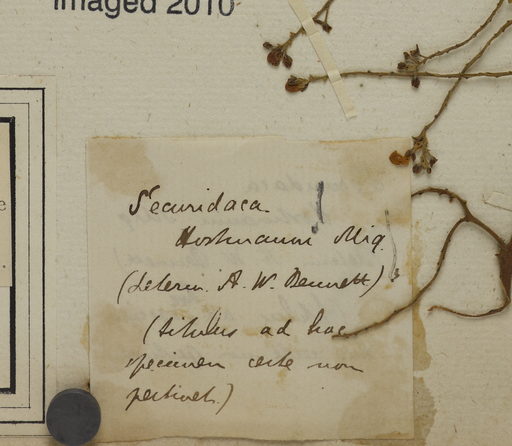 Imaged 2010
Securidaca
Hostmanni Miq.
(determ. A. W. Bennett)
(titulus ad hoc
specimen certe non
pertinet.)
e